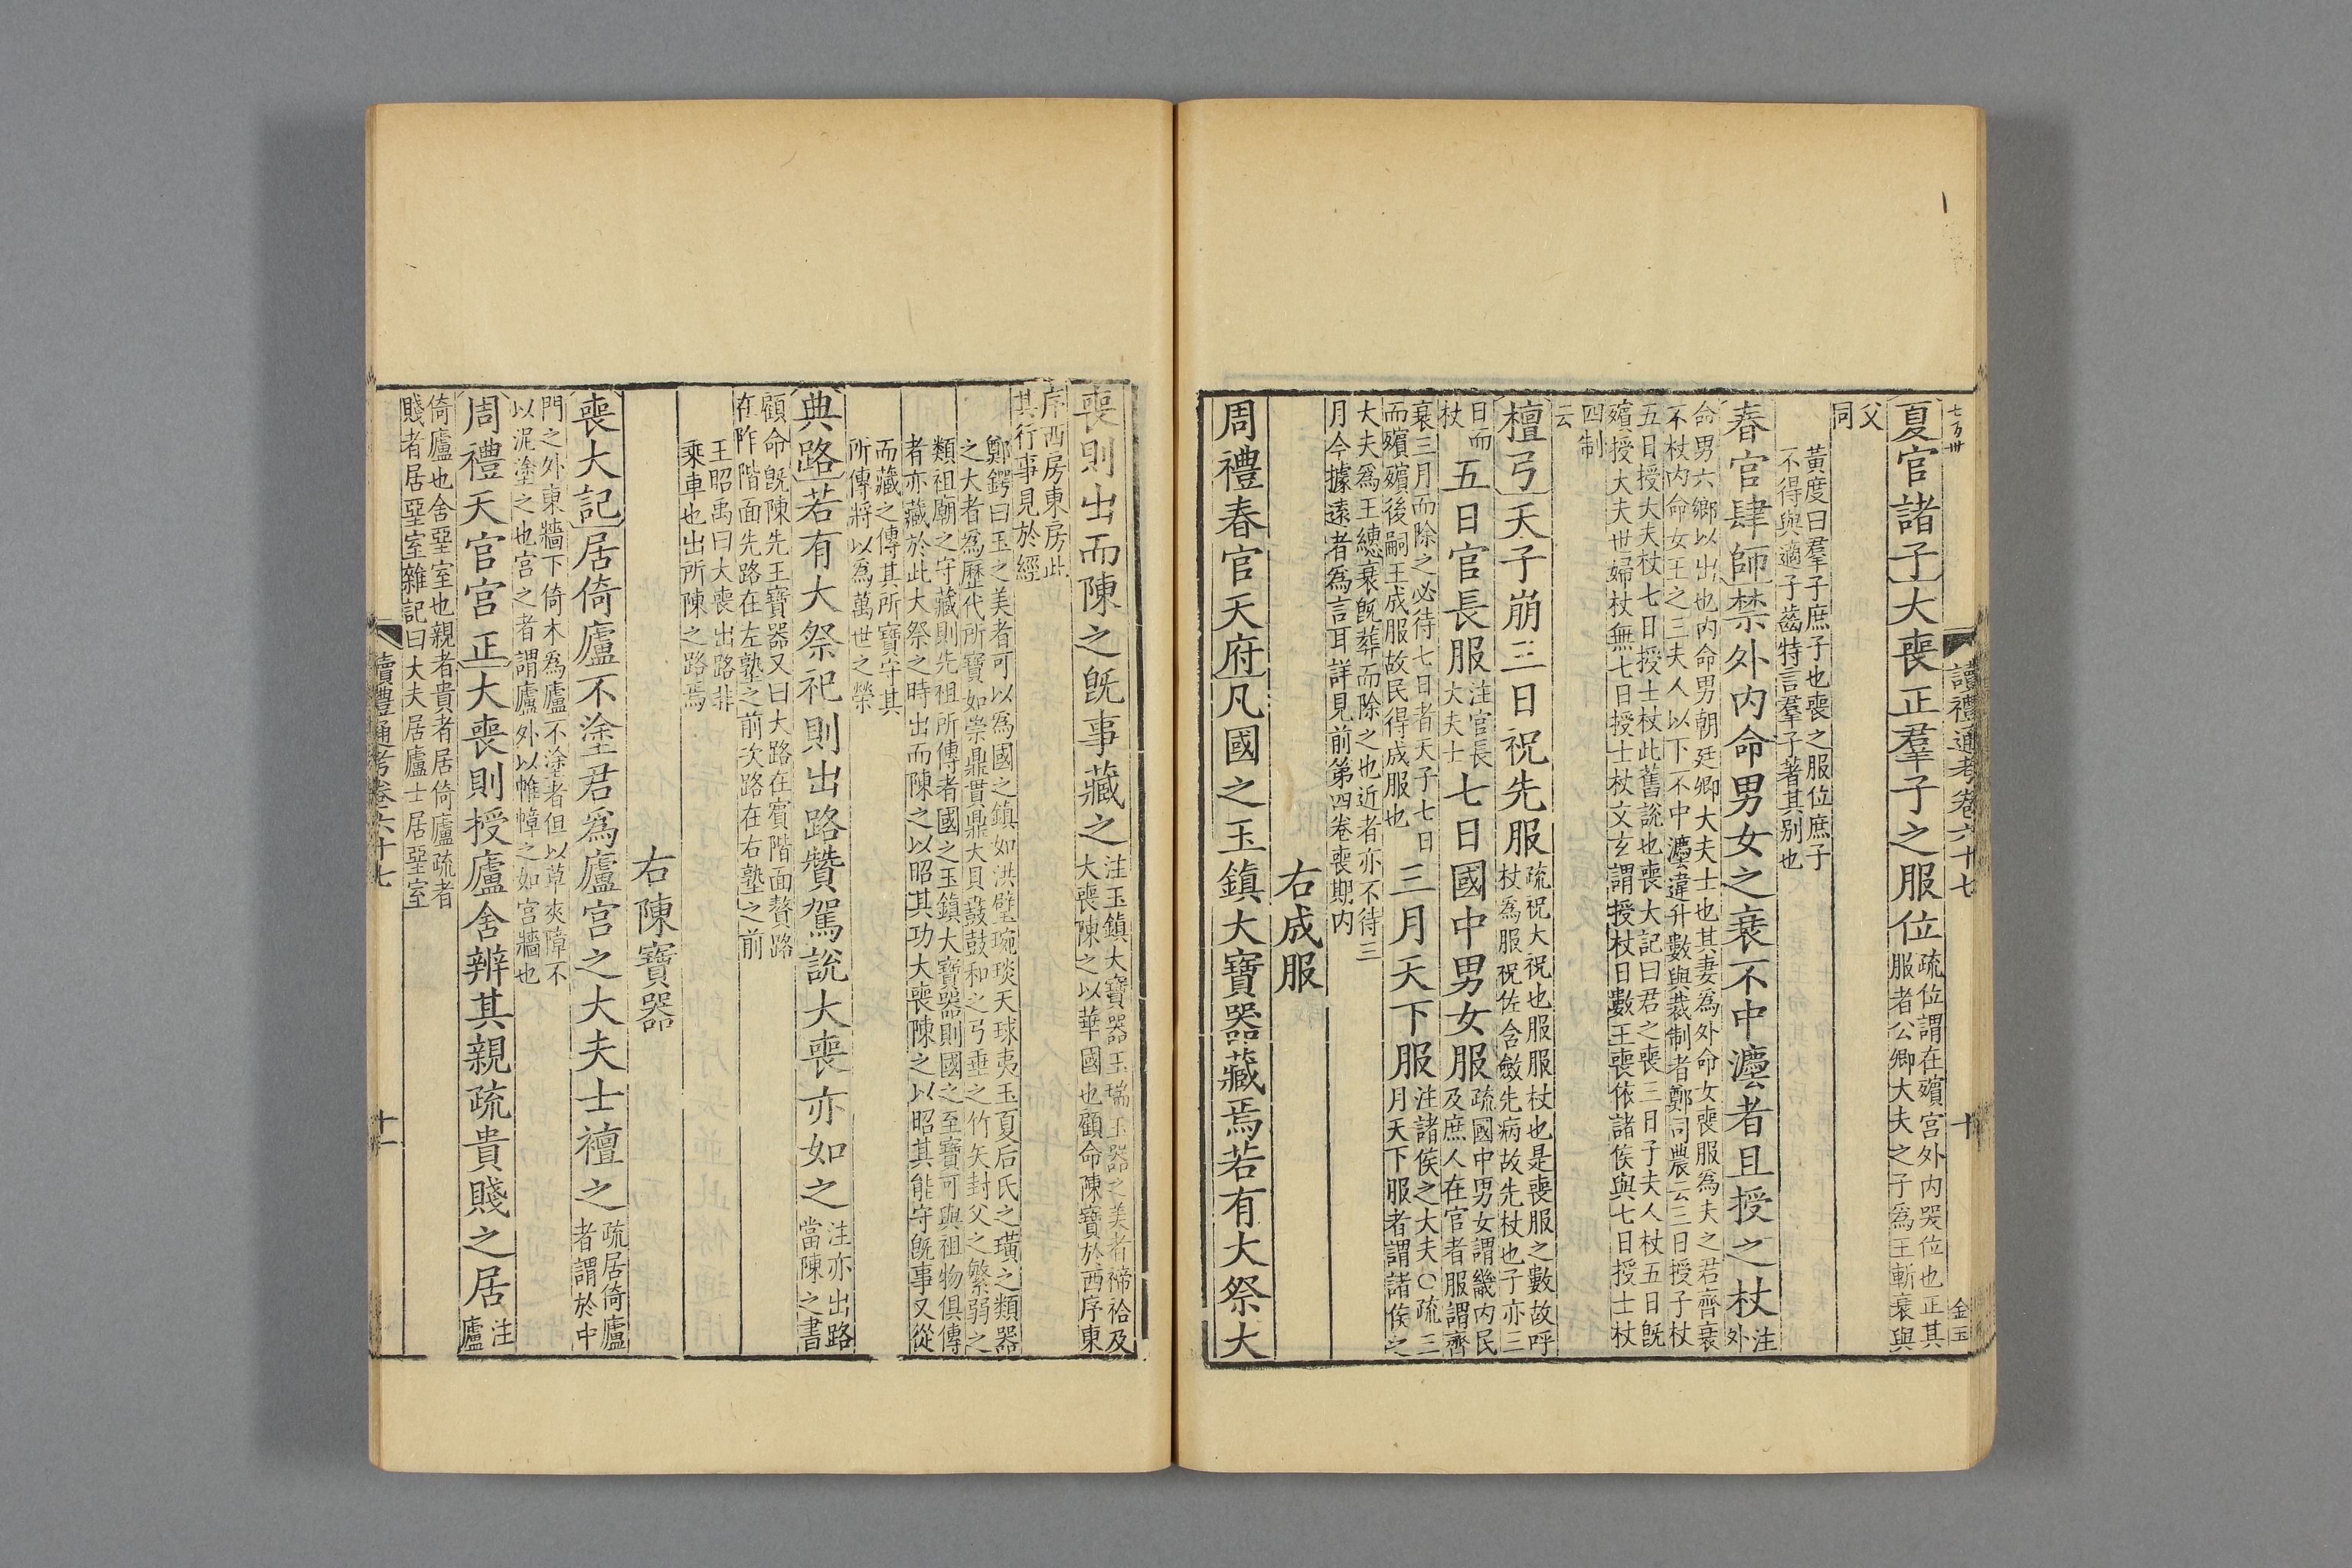 七百卅
讀禮通考卷六十七
十
金玉
夏官諸子大喪正羣子之服位疏位謂在殯宮外內哭位也正其
服者公卿大夫之子爲王斬衰與
父
同
黃度曰羣子庶子也喪之服位庶子
不得與適子齒特言羣子著其别也
春官肆師禁外內命男女之衰不中灋者且授之杖注
外
命男六鄉以出也內命男朝廷卿大夫士也其妻爲外命女喪服爲夫之君齊衰
不杖內命女王之三夫人以下不中灋違升數與裁制者鄭司農云三日授子杖
五日授大夫杖七日授士杖此舊說也喪大記曰君之喪三日子夫人杖五日旣
殯授大夫世婦杖無七日授士杖文玄謂授杖日數王喪依諸侯與七日授士杖
四制
云
檀弓天子崩三日祝先服疏祝大祝也服服杖也是喪服之數故呼
杖爲服祝佐含斂先病故先杖也子亦三
日而
杖
五日官長服注官長
大夫士
七日國中男女服疏國中男女謂畿內民
及庶人在官者服謂齊
衰三月而除之必待七日者天子七日
而殯殯後嗣王成服故民得成服也
三月天下服注諸侯之大夫〇疏三
月天下服者謂諸侯之
大夫爲王繐衰旣葬而除之也近者亦不待三
月今據遠者爲言耳詳見前第四卷喪期內
右成服
周禮春官天府凡國之玉鎮大寶器藏焉若有大祭大
喪則出而陳之旣事藏之注玉鎮大寶器玉瑞玉器之美者禘祫及
大喪陳之以華國也顧命陳寶於西序東
序西房東房此
其行事見於經
鄭鍔曰玉之美者可以爲國之鎮如洪璧琬琰天球夷玉夏后氏之璜之類器
之大者爲歷代所寶如崇鼎貫鼎大貝鼖鼓和之弓垂之竹矢封父之繁弱之
類祖廟之守藏則先祖所傳者國之玉鎮大寶器則國之至寶可與祖物俱傳
者亦藏於此大祭之時出而陳之以昭其功大喪陳之以昭其能守旣事又從
而藏之傳其所寶守其
所傳將以爲萬世之榮
典路若有大祭祀則出路贊駕說大喪亦如之注亦出路
當陳之書
顧命旣陳先王寶器又曰大路在賓階面贅路
在阼階面先路在左塾之前次路在右塾之前
王昭禹曰大喪出路非
乘車也出所陳之路焉
右陳寶器
喪大記居倚廬不塗君爲廬宮之大夫士襢之疏居倚廬
者謂於中
門之外東牆下倚木爲廬不塗者但以草夾障不
以泥塗之也宮之者謂廬外以帷幛之如宮牆也
周禮天官宮正大喪則授廬舍辨其親疏貴賤之居注
廬
倚廬也舍堊室也親者貴者居倚廬疏者
賤者居堊室雜記曰大夫居廬士居堊室
讀禮通考卷六十七
十一